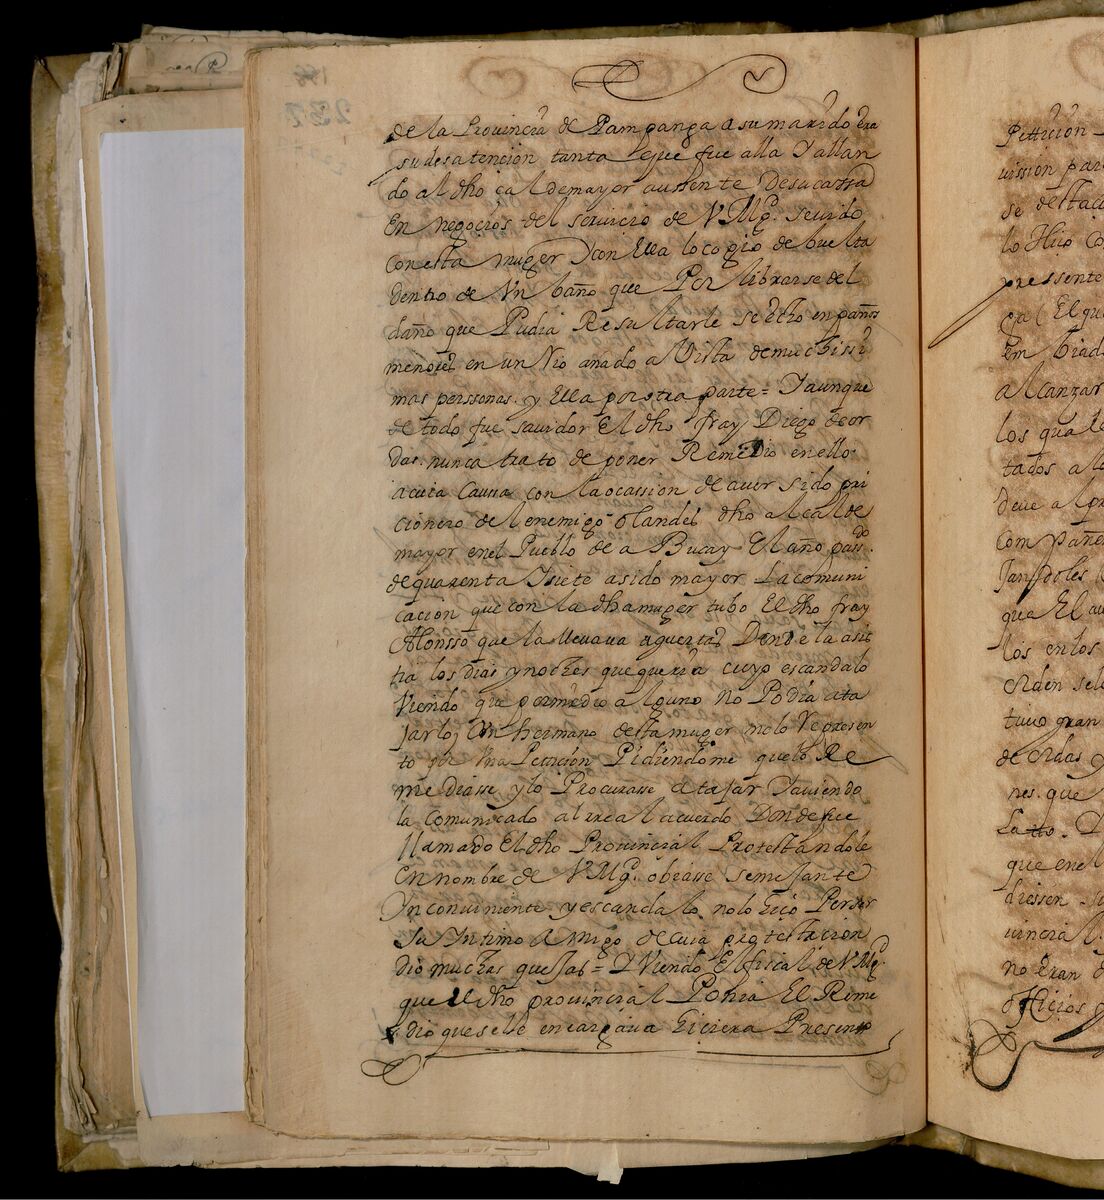 de la Provincia de Pampanga a su marido Era
su desatencion tanta que fue alla Y allan
do al dho çal de mayor aussente Desucassa
En negocios del seruicio de V Mgd. seuido
Con esta muger Y con Ella lo cogio de buelta
dentro de Vn baño que Por librarse del
daño que Pudia Resultarle se echo en paños
menores en un Rio anado a Vista de muchissi
mas perssonas. y Ella por otra parte = Y aunque
de todo fue sauidor El dho fray Diego de or
das. nunca trato de poner Remedio en ello.
a cuia Caussa con la ocassion de auer sido pri
cionero del enemigo olandes dho alcalde
mayor en el Pueblo de a Bucay El año passdo.
de quarenta Y siete a sido mayor La comuni
cacion que con la dha muger tubo El dho fray
Alonsso que la lleuaua a guertas Donde la asis
tia los dias y noches que queria cuyo escandalo
Viendo que por medio alguno no Podia ata
Jarlo, Vn hermano desta muger me lo Represen
to por Vna Peticion Pidiendome que lo Re
mediasse y lo Procurasse atajar Y auiendo
la Comunicado al real acuerdo Donde fue
llamado El dho Prouincial Protestandole
En nombre de V Mgd. obiasse semejante
Ynconuiniente y escandalo no lo hiço Por ser
Su Yntimo Amigo de cuia protestacion
dio muchas quejas = Y Viendo El fiscal de V Mgd.
que El dho prouincial Ponia El Reme
dio que se le encargaua hiciera Presen
Peticion
uission par
se desta
lo Hijo Co
pressente
ça ( El qu
Em biad
alcanzar
los quale
tados a l
deue al pr
Com pañe
Jandoles
que El au
los en los
orden sele
tuuo gran
de ordas y
nes. que
que en el
diessen
uincial.
no Eran
officios